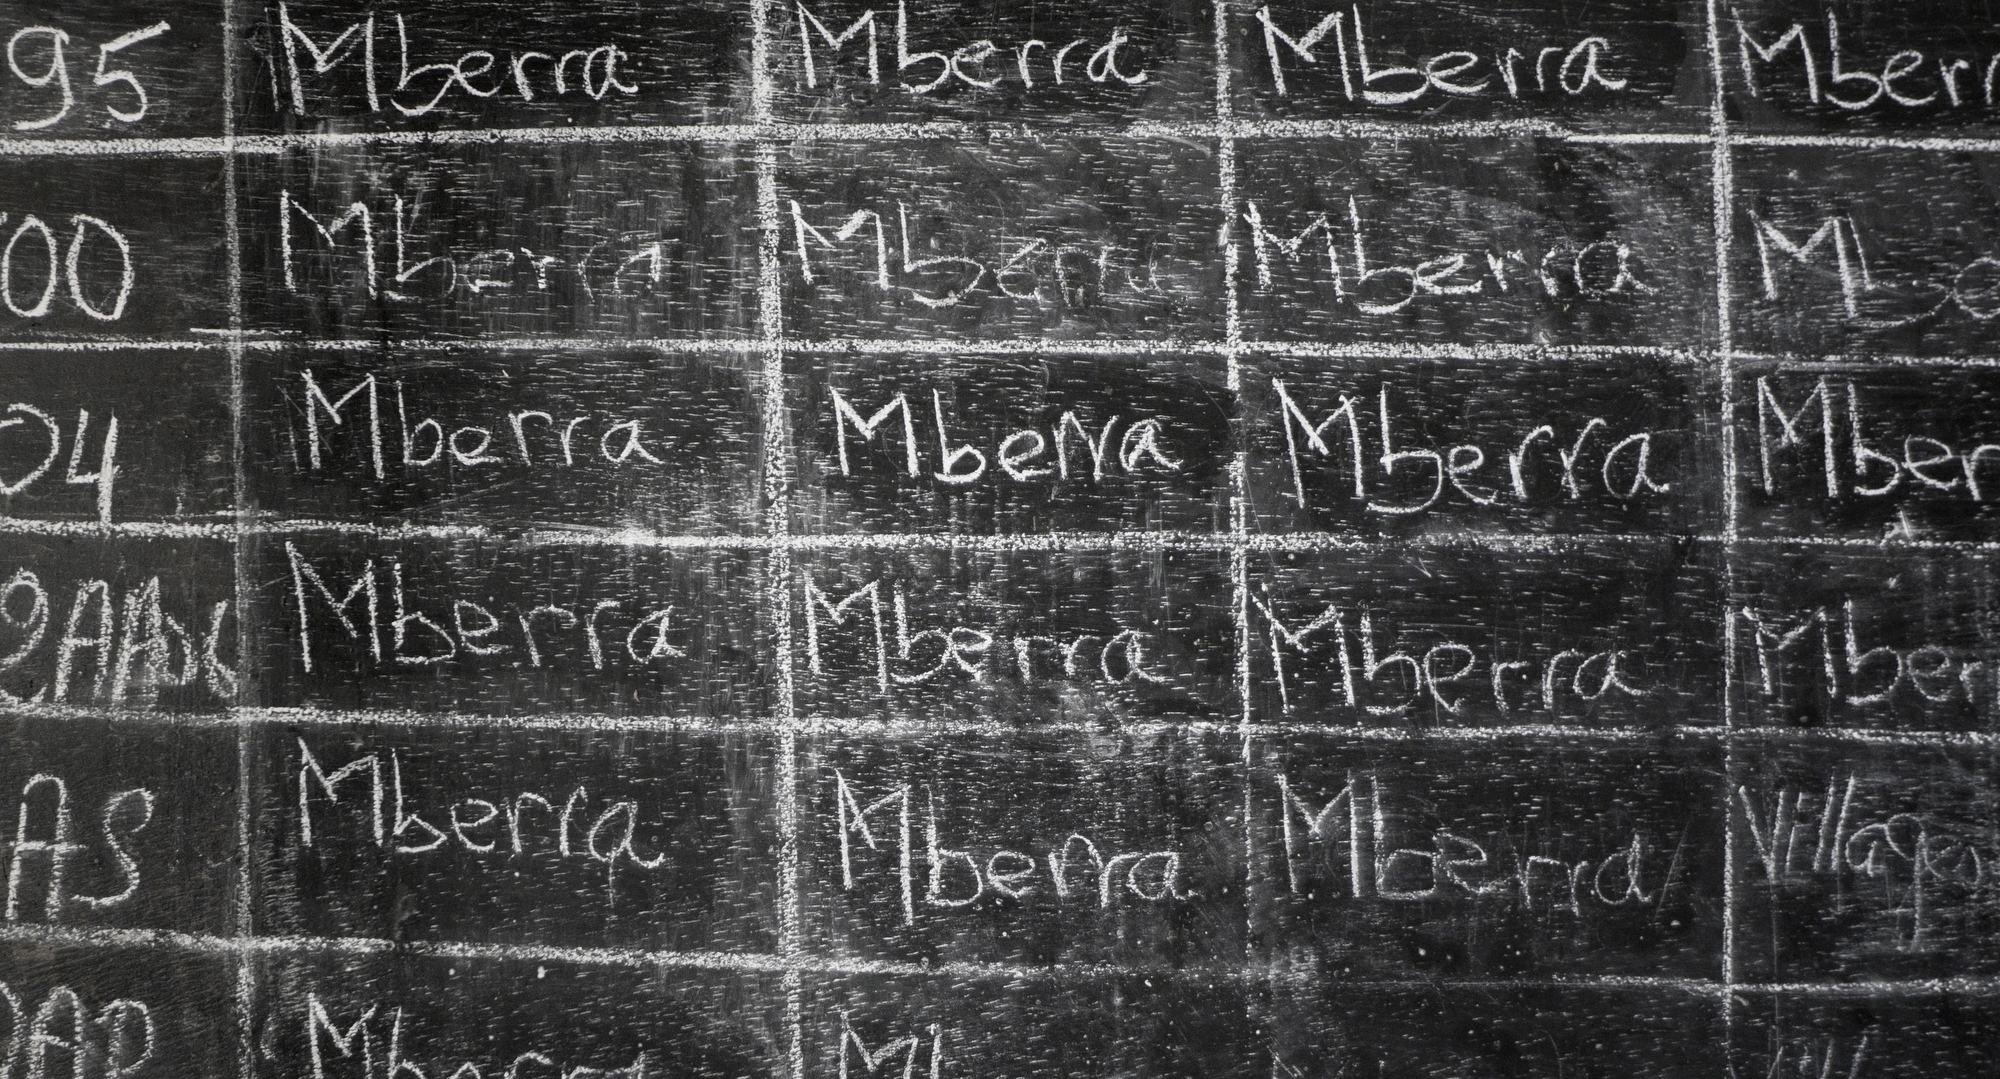 95 Mberra Mberra Mberra Mberr
00 Mberra Mberra Mberra Mbe
04 Mberra Mberra Mberra Mber
Mberra Mberra Mberra Mber
AS Mberra Mberra Mberra Villages
Mberra